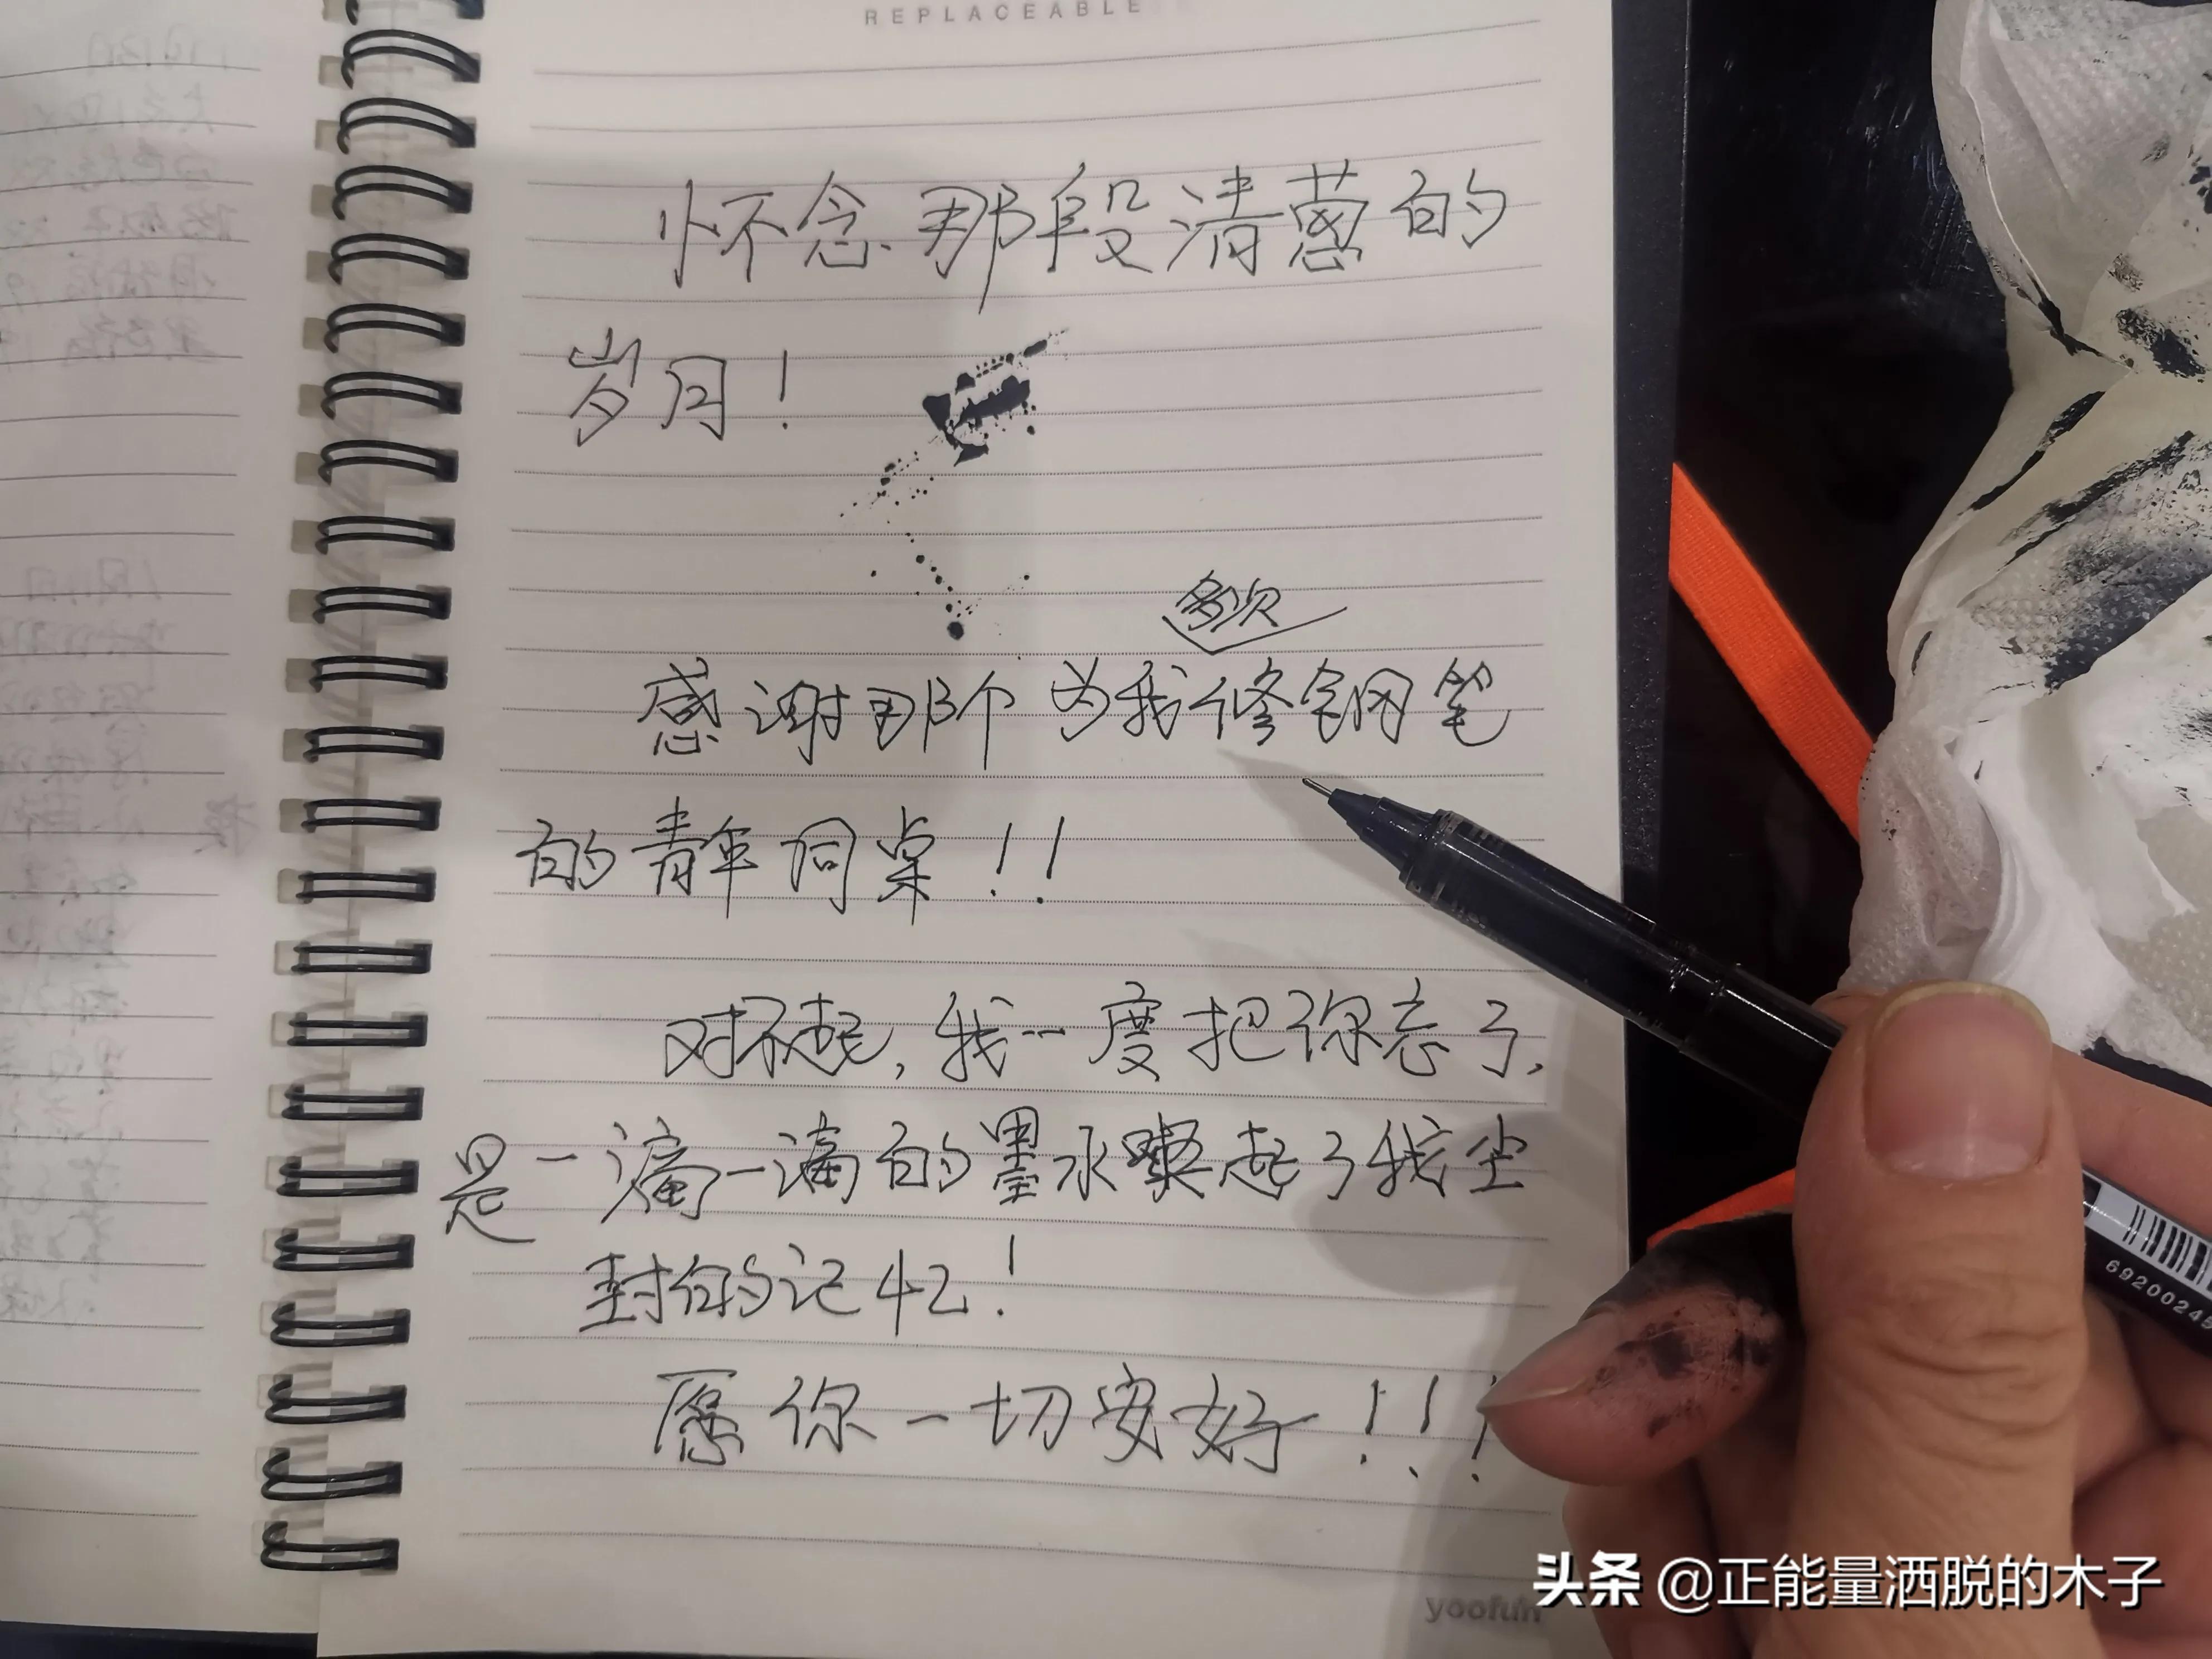 REPLACEABLE
怀念那段清蔥的
岁月!
多次
感谢那个为我修钢笔
的青年同桌!!
对不起,我一度把你忘了,
是一滴一滴的墨水唤起了我尘
封的记忆!
愿你一切安好!!!
6920024
yoofun
头条 @正能量洒脱的木子